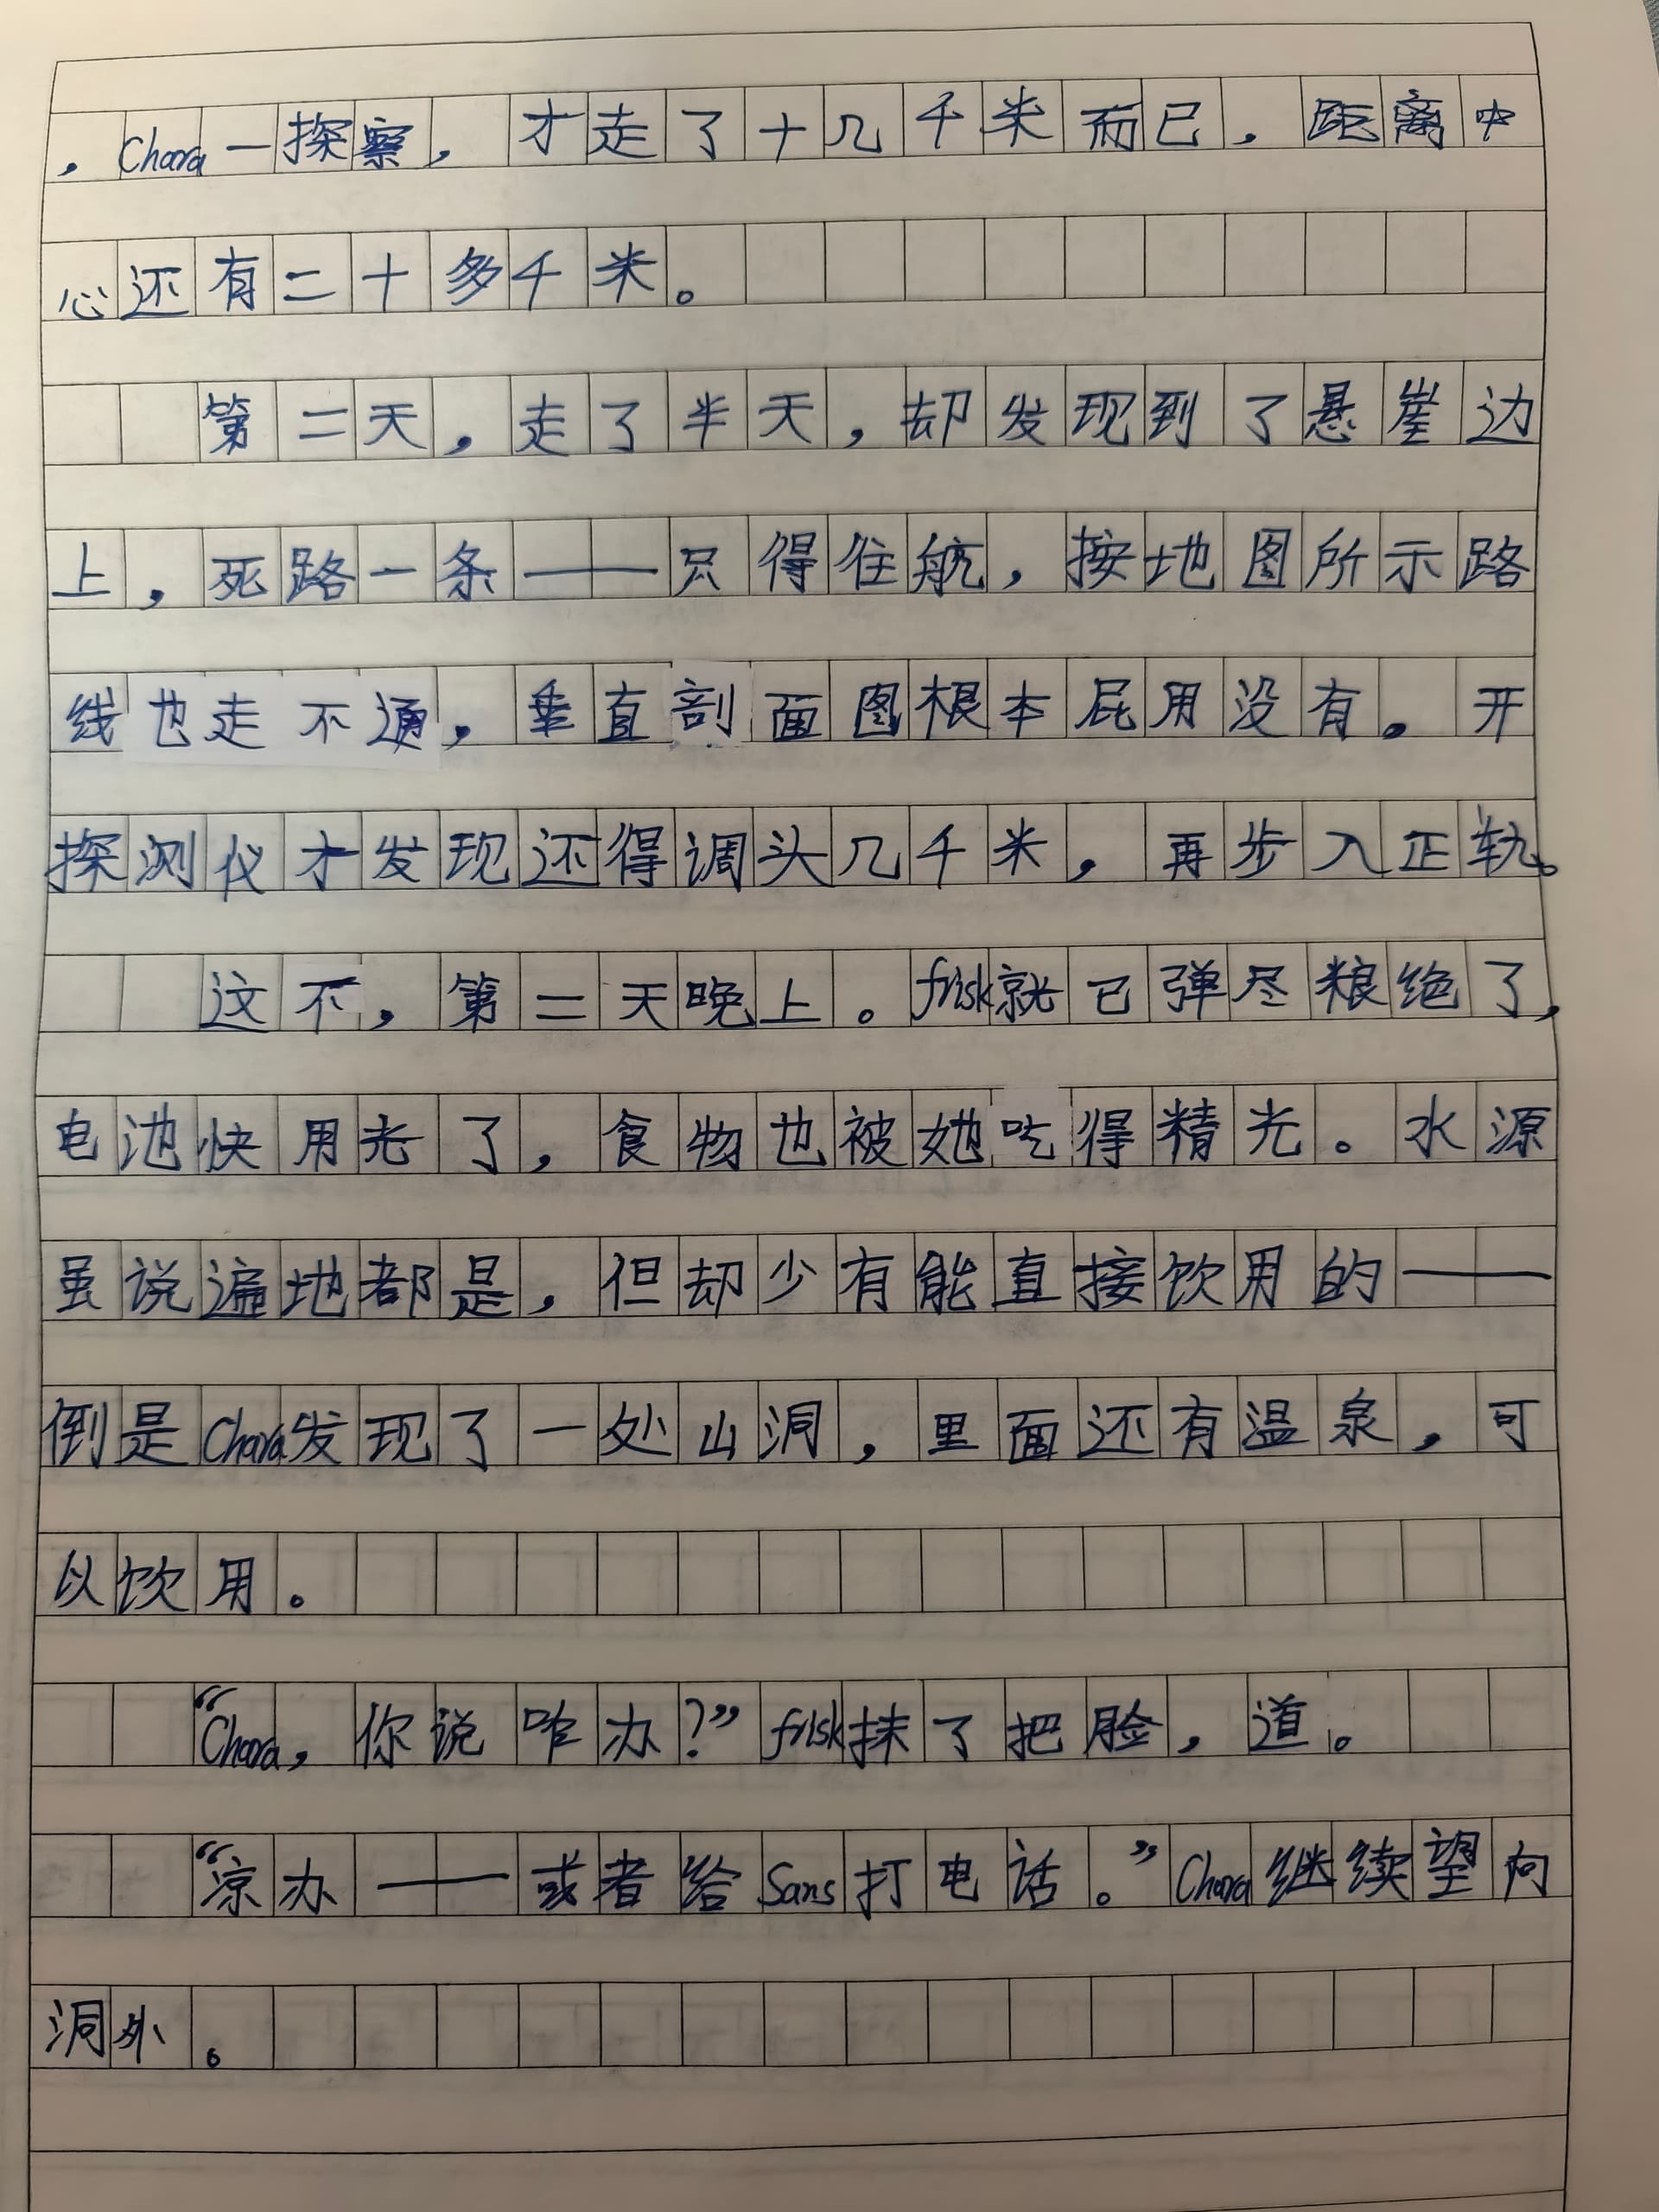 ，Chara一探察，才走了十几千米而已，距离中
心还有二十多千米。
第二天，走了半天，却发现到了悬崖边
上，死路一条——只得住航，按地图所示路
线也走不通，垂直剖面图根本屁用没有。开
探测仪才发现还得调头几千米，再步入正轨。
这不，第二天晚上。frisk就已弹尽粮绝了，
电池快用光了，食物也被她吃得精光。水源
虽说遍地都是，但却少有能直接饮用的——
倒是Chara发现了一处山洞，里面还有温泉，可
以饮用。
“Chara，你说咋办？”frisk抹了把脸，道。
“凉办——或者给Sans打电话。”Chara继续望向
洞外。